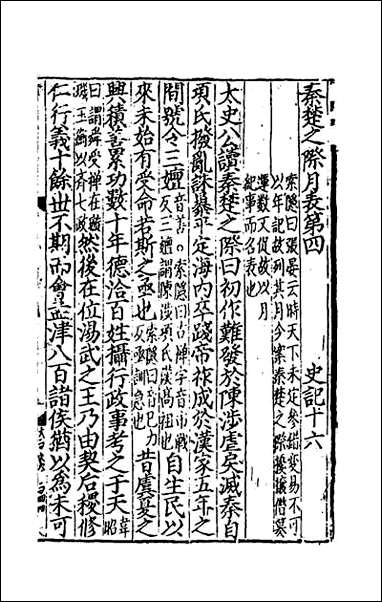 秦楚之際月表第四　史記十六
索隱曰張晏云時天下未定參錯變易不可
以年記故列其月今案秦楚之際擾攘僣篡
運數又促故以月
紀事而名表也
太史公讀秦楚之際曰初作難發於陳涉虐戾滅秦自
項氏撥亂誅暴平定海內卒踐帝祚成於漢家五年之
間號令三嬗音善○索隱曰古禪字音市戰反三嬗謂陳涉項氏漢高祖也自生民以
來未始有受命若斯之亟也索隱曰音己力反亟訓急也昔虞夏之
興積善累功數十年德洽百姓攝行政事考之于天韋昭
曰謂舜受禪在璇璣玉衡以齊七政然後在位湯武之王乃由契后稷修
仁行義十餘世不期而會孟津八百諸侯猶以為未可